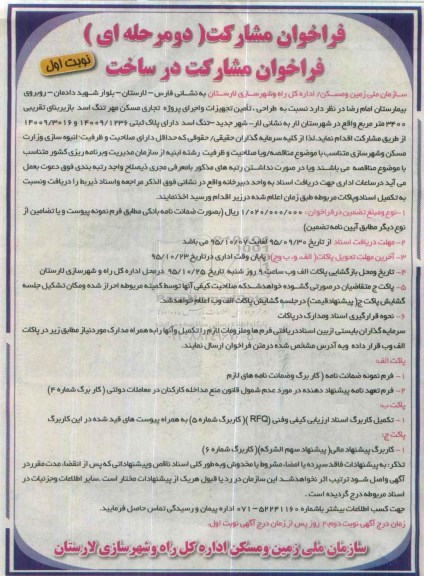 فراخوان مشارکت( دومرحله ای )
فراخوان مشارکت در ساخت
نوبت اول
سازمان ملی زمین ومسکن/ اداره کل راه وشهرسازی لارستان به نشانی فارس - لارستان - بلوار شهید دادمان - روبروی
بیمارستان امام رضا در نظر دارد نسبت به طراحی ، تأمین تجهیزات واجرای پروژه تجاری مسکن مهر تنگ اسد بازیربنای تقریبی
۳۴۰۰ متر مربع واقع در شهرستان لار به نشانی لار- شهر جدید -تنگ اسد دارای پلاک ثبتی ۱۴۰۰۹/۱۲۳۶ و ۱۴۰۰۹/۳۰۱۶
از طریق مشارکت اقدام نماید.لذا از کلیه سرمایه گذاران حقیقی/ حقوقی که حداقل دارای صلاحیت و ظرفیت انبوه سازی وزارت
مسکن وشهرسازی متناسب با موضوع مناقصه/ویا صلاحیت و ظرفیت رشته ابنیه از سازمان مدیریت وبرنامه ریزی کشور متناسب
با موضوع مناقصه می باشند ویا در صورت نداشتن رتبه های مذکور بامعرفی مجری ذیصلاح واجد رتبه بندی فوق دعوت بعمل
می آید درساعات اداری جهت دریافت اسناد به واحد دبیرخانه واقع در نشانی فوق الذکر مراجعه واسناد ذیربط را دریافت ونسبت
به تکمیل اسنادوپاکات مربوطه طبق زمان اعلام شده در زیر اقدام ورسید اخذنمایند.
۱-نوع ومبلغ تضمین درفراخوان : ۱/۰۲۰/۰۰۰/۰۰۰ ریال (بصورت ضمانت نامه بانکی مطابق فرم نمونه پیوست و یا تضامین از
نوع دیگر مطابق آیین نامه تضمین)
۲- مهلت دریافت اسناد از تاریخ ۹۵/۰۹/۳۰ لغایت ۹۵/۱۰/۰۷ می باشد
۳- آخرین مهلت تحویل پاکات( الف و، ب وج): پایان وقت اداری درتاریخ ۹۵/۱۰/۲۳
۴- تاریخ ومحل بازگشایی پاکات الف وب ساعت ۹ روز شنبه تاریخ ۹۵/۱۰/۲۵ درمحل اداره کل راه و شهرسازی لارستان
۵- پاکت ج متقاضیان درصورتی گشوده خواهدشدکه صلاحیت کیفی آنها توسط کمیته مربوطه احراز شده ومکان تشکیل جلسه
گشایش پاکت ج( پیشنهادقیمت) درجلسه گشایش پاکات الف وب اعلام خواهدشد.
۶- نحوه قرارگیری اسناد ومدارک درپاکات
سرمایه گذاران بایستی ازبین اسناددریافتی فرم ها وملزومات لازم را تکمیل وآنها رابه همراه مدارک موردنیاز مطابق زیر در پاکات
الف وب قرار داده وبه آدرس مشخص شده درمتن فراخوان ارسال نمایند.
پاکت الف:
۱- فرم نمونه ضمانت نامه ( کاربرگ وضمانت نامه های لازم
۲- فرم تعهد نامه پیشنهاد دهنده در مورد عدم شمول قانون منع مداخله کارکنان در معاملات دولتی ( کاربرگ شماره ۴)
پاکت ب:
۱ - تکمیل کاربرگ اسناد ارزیابی کیفی وفنی (RFQ )( کاربرگ شماره ۵) به همراه پیوست های قید شده در این کاربرگ
پاکت ج:
۱- کاربرگ پیشنهاد مالی( پیشنهاد سهم الشرکه)( کاربرگ شماره ۶ )
تذکر: به پیشنهادات فاقد سپرده یا امضاء، مشروط یا مخدوش وبه طور کلی اسناد ناقص وپیشنهاداتی که پس از انقضاء مدت مقرردر
آگهی واصل شود ترتیب اثر نخواهدشد. این سازمان در رد یا قبول هریک از پیشنهادات مختار است .سایر اطلاعات وجزئیات در
اسناد مربوطه درج گردیده است .
جهت کسب اطلاعات بیشتر باشماره ۵۲۲۴۱۱۶۰-۰۷۱ اداره پیمان و رسیدگی تماس حاصل فرمایید.
زمان درج آگهی نوبت دوم:۲ روز پس از زمان درج آگهی نوبت اول.
سازمان ملی زمین ومسکن اداره کل راه وشهرسازی لارستان